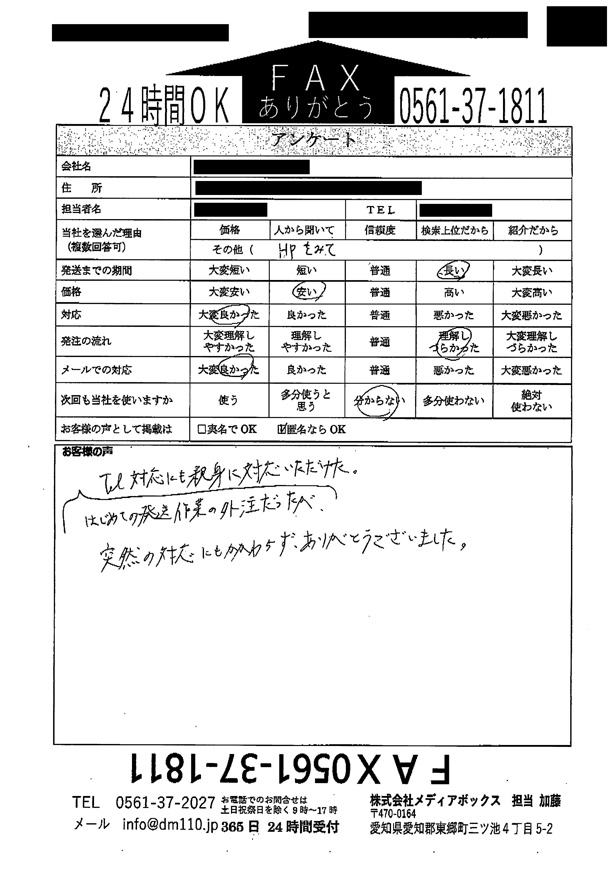 FAX
ありがとう
24時間OK
0561-37-1811
アンケート
会社名
住　所
担当者名 TEL
当社を選んだ理由（複数回答可） 価格 人から聞いて 信頼度 検索上位だから 紹介だから
その他（ HPをみて ）
発送までの期間 大変短い 短い 普通 長い 大変長い
価格 大変安い 安い 普通 高い 大変高い
対応 大変良かった 良かった 普通 悪かった 大変悪かった
発注の流れ 大変理解しやすかった 理解しやすかった 普通 理解しづらかった 大変理解しづらかった
メールでの対応 大変良かった 良かった 普通 悪かった 大変悪かった
次回も当社を使いますか 使う 多分使うと思う 分からない 多分使わない 絶対使わない
お客様の声として掲載は □実名でOK ☑匿名ならOK
お客様の声
Tel対応にも親身に対応いただけた。
はじめての発送作業の外注だったが、
突然の対応にもかかわらず、ありがとうございました。
FAX0561-37-1811
TEL 0561-37-2027 お電話でのお問合せは
土日祝祭日を除く9時〜17時
メール info@dm110.jp 365日 24時間受付
株式会社メディアボックス 担当 加藤
〒470-0164
愛知県愛知郡東郷町三ツ池4丁目5-2